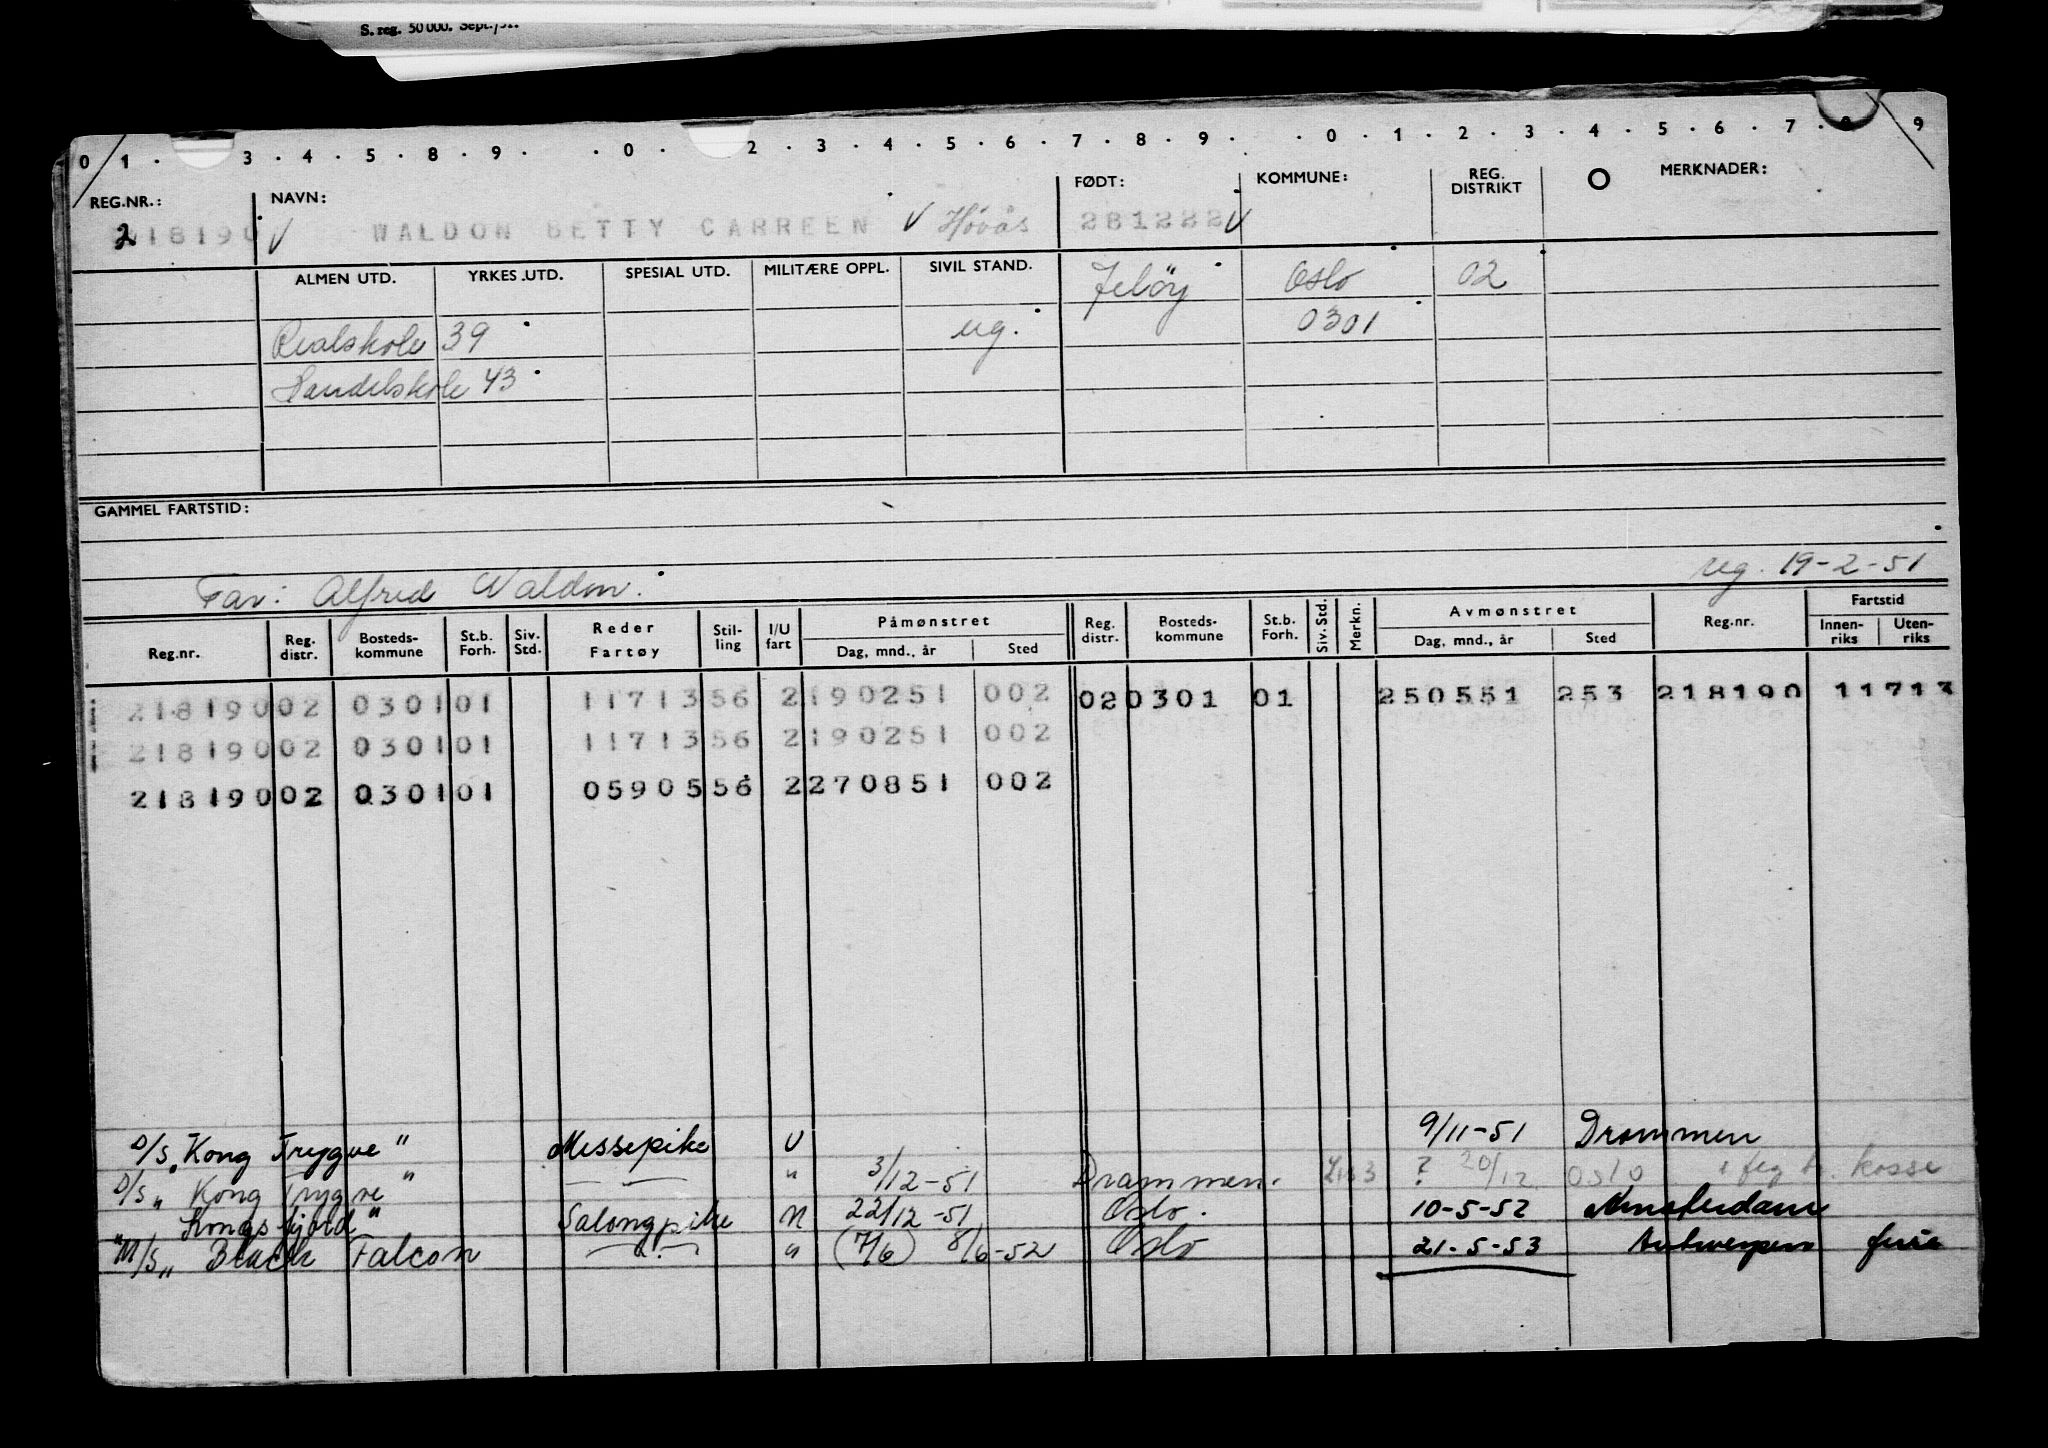 S. reg. 50 000. Sept./51.
0 1 . 3 . 4 . 5 . 8 . 9 . . 0 . 2 . 3 . 4 . 5 . 6 . 7 . 8 . 9 . . 0 . 1 . 2 . 3 . 4 . 5 . 6 . 7 . 8 . 9
REG.NR.: NAVN: FØDT: KOMMUNE: REG. DISTRIKT MERKNADER:
218190 V WALDON BETTY CARREEN V Høvås 281222 V
ALMEN UTD. YRKES UTD. SPESIAL UTD. MILITÆRE OPPL. SIVIL STAND. Jeløy Oslo 02
Realskole 39 ug. 0301
Handelskole 43
GAMMEL FARTSTID:
Far: Alfred Waldon. reg. 19-2-51
Reg.nr. Reg. distr. Bosteds- kommune St.b. Forh. Siv. Std. Reder Fartøy Stil- ling I/U fart Påmønstret Dag, mnd., år Sted Reg. distr. Bosteds- kommune St.b. Forh. Siv. Std. Merkn. Avmønstret Dag, mnd., år Sted Reg.nr. Fartstid Innen- riks Uten- riks
218190 02 0301 01 11713 56 2 190251 002 02 0301 01 250551 253 218190 11713
218190 02 0301 01 11713 56 2 190251 002
218190 02 0301 01 05905 56 2 270851 002
D/S "Kong Trygve" Messepike U 9/11-51 Drammen
D/S "Kong Trygve" — — " 3/12-51 Drammen. ? 20/12 Oslo
"Kongsfjord" Salongpike N 22/12-51 Oslo. 10-5-52 Amsterdam
M/S "Black Falcon — " — " (7/6) 8/6-52 Oslo 21-5-53 Antwerpen